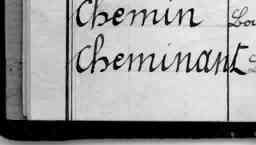 Chemin Lou
Cheminant